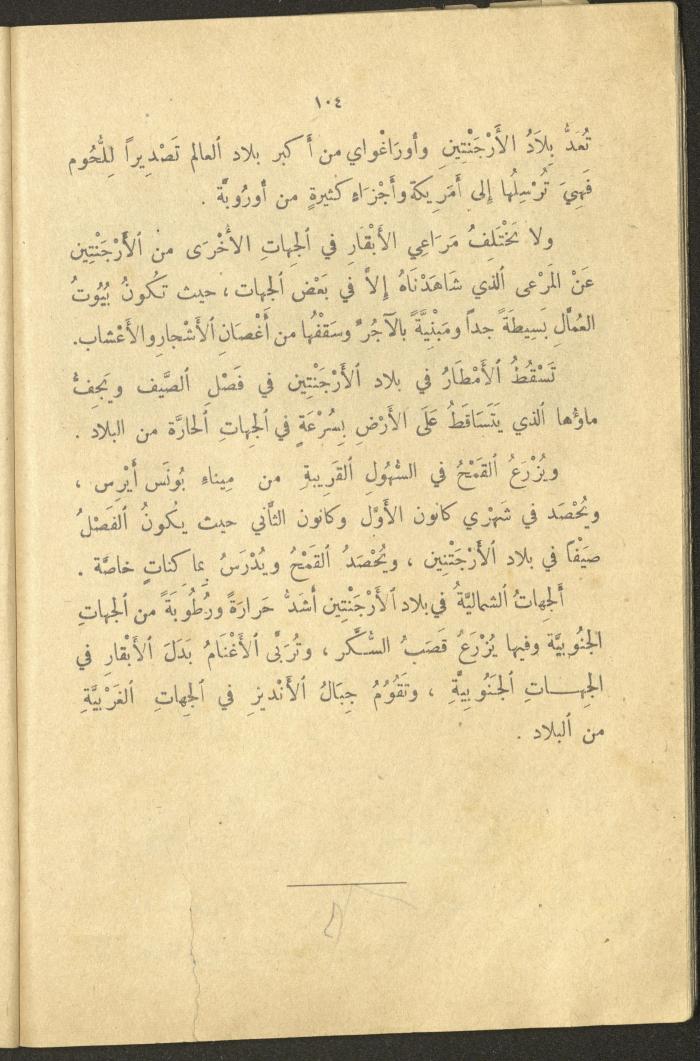 ١٠٤
تُعَدُّ بِلَادُ الأَرْجَنْتِينِ وأورَاغْواي من أَكبر بلاد العالم تَصْدِيراً لِلُّحُوم
فَهِيَ تُرْسِلُها إلى أَمَرِيكة وأَجْزَاءٍ كَثيرةٍ من أُورُوبَّة .
ولا يَخْتَلِفُ مَرَاعِي الأَبْقَارِ في الجهاتِ الأُخْرَى من الأَرْجَنْتِين
عَنْ المَرْعى الَّذي شَاهَدْنَاهُ إلاَّ في بَعْض الجهات ، حيث تكُونُ بُيُوتُ
العمَّالِ بَسِيطَةً جداً ومَبْنِيَّةً بالآجُرِّ وسَقْفُها من أَغْصَانِ الأَشْجارِ والأَعْشاب.
تَسْقُطُ الأَمْطَارُ في بلاد الأَرْجَنْتِين في فَصْلِ الصَّيف ويَجِفُّ
ماؤها الَّذي يَتَسَاقَطُ عَلَى الأَرْضِ بِسُرْعَةٍ في الجهاتِ الحارَّة من البلاد .
ويُزْرَعُ القَمْحُ في السُّهُولِ القَرِيبةِ من مِيناءِ بُونَس أَيْرِس ،
ويُحْصَد في شَهْرَي كانون الأَوَّل وكانون الثَّاني حيث يكُونُ الفَصْلُ
صَيْفاً في بلاد الأَرْجَنْتِين ، ويُحْصَدُ القَمْحُ ويُدْرَسُ بِماكناتٍ خاصَّة .
أَلجهاتُ الشماليَّةُ في بلاد الأَرْجَنْتِين أَشَدُّ حَرارَةً ورُطُوبَةً من الجهاتِ
الجنُوبيَّة وفيها يُزْرَعُ قَصَبُ السُّكَّر ، وتُرَبَّى الأَغْنَامُ بَدَلَ الأَبْقارِ في
الجهـــاتِ الجَنُوبِيَّةِ ، وتَقُوُمُ جِبَالُ الأَنْديزِ في الجهاتِ الغَرْبيَّةِ
من البلاد .